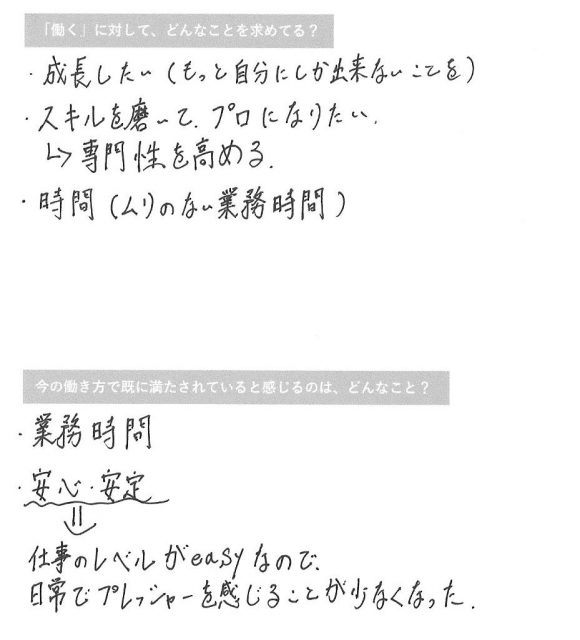 「働く」に対して、どんなことを求めてる？
・成長したい（もっと自分にしか出来ないことを）
・スキルを磨いて、プロになりたい。
↳専門性を高める。
・時間（ムリのない業務時間）
今の働き方で既に満たされていると感じるのは、どんなこと？
・業務時間
・安心・安定
⇓
仕事のレベルがeasyなので、
日常でプレッシャーを感じることが少なくなった。